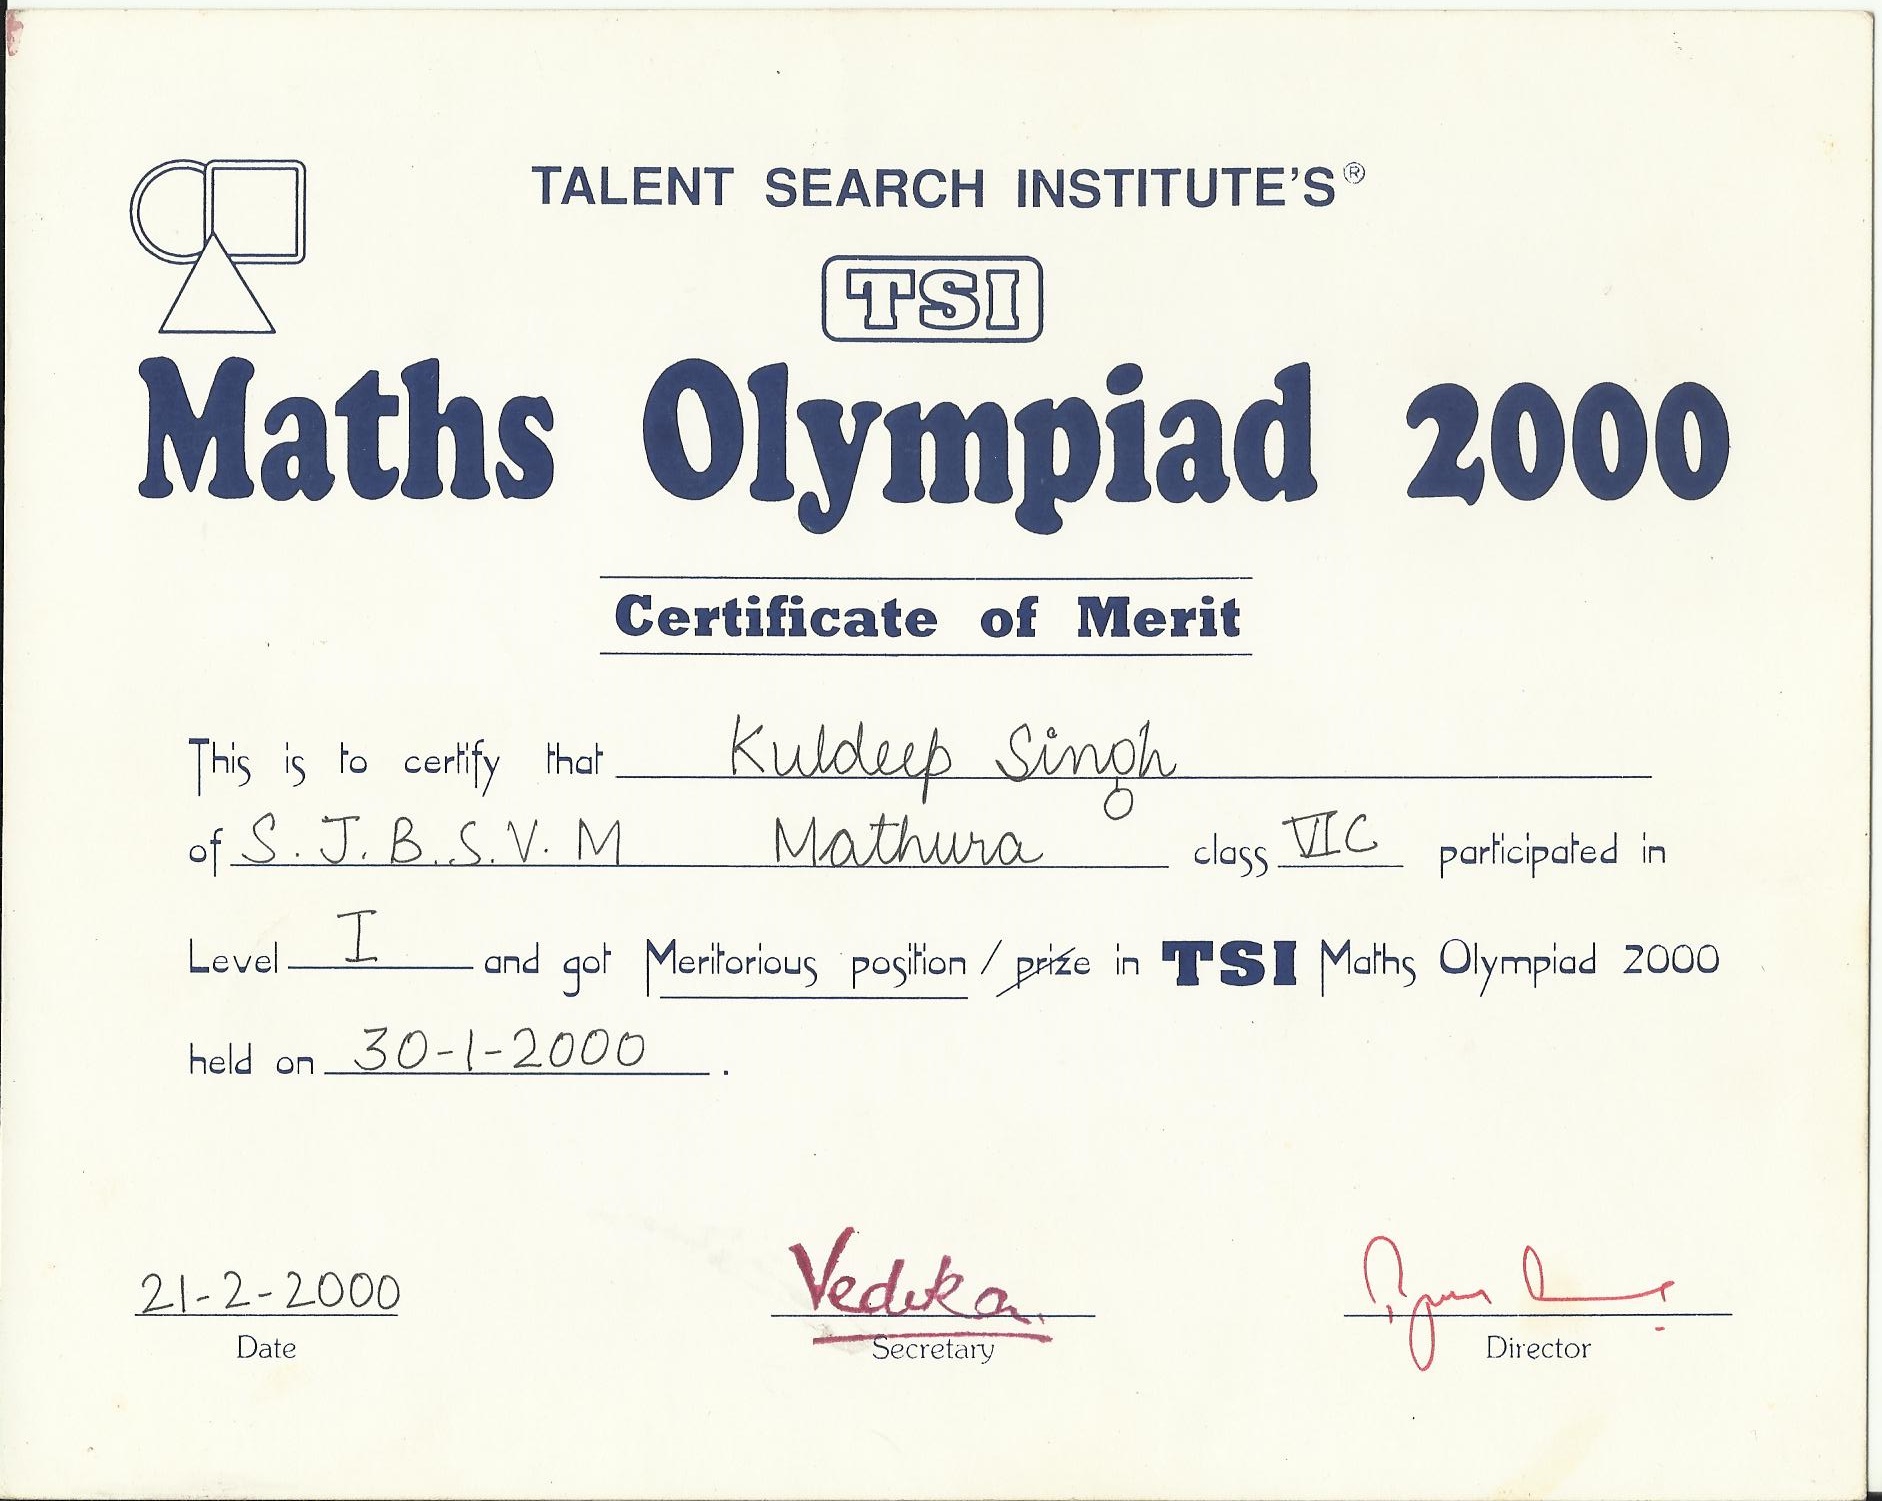 TALENT SEARCH INSTITUTE'S®
TSI
Maths Olympiad 2000
Certificate of Merit
This is to certify that Kuldeep Singh
of S. J. B. S. V. M Mathura class VI C participated in
Level I and got Meritorious position / prize in TSI Maths Olympiad 2000
held on 30-1-2000.
21-2-2000 Vedika.
Date Secretary Director